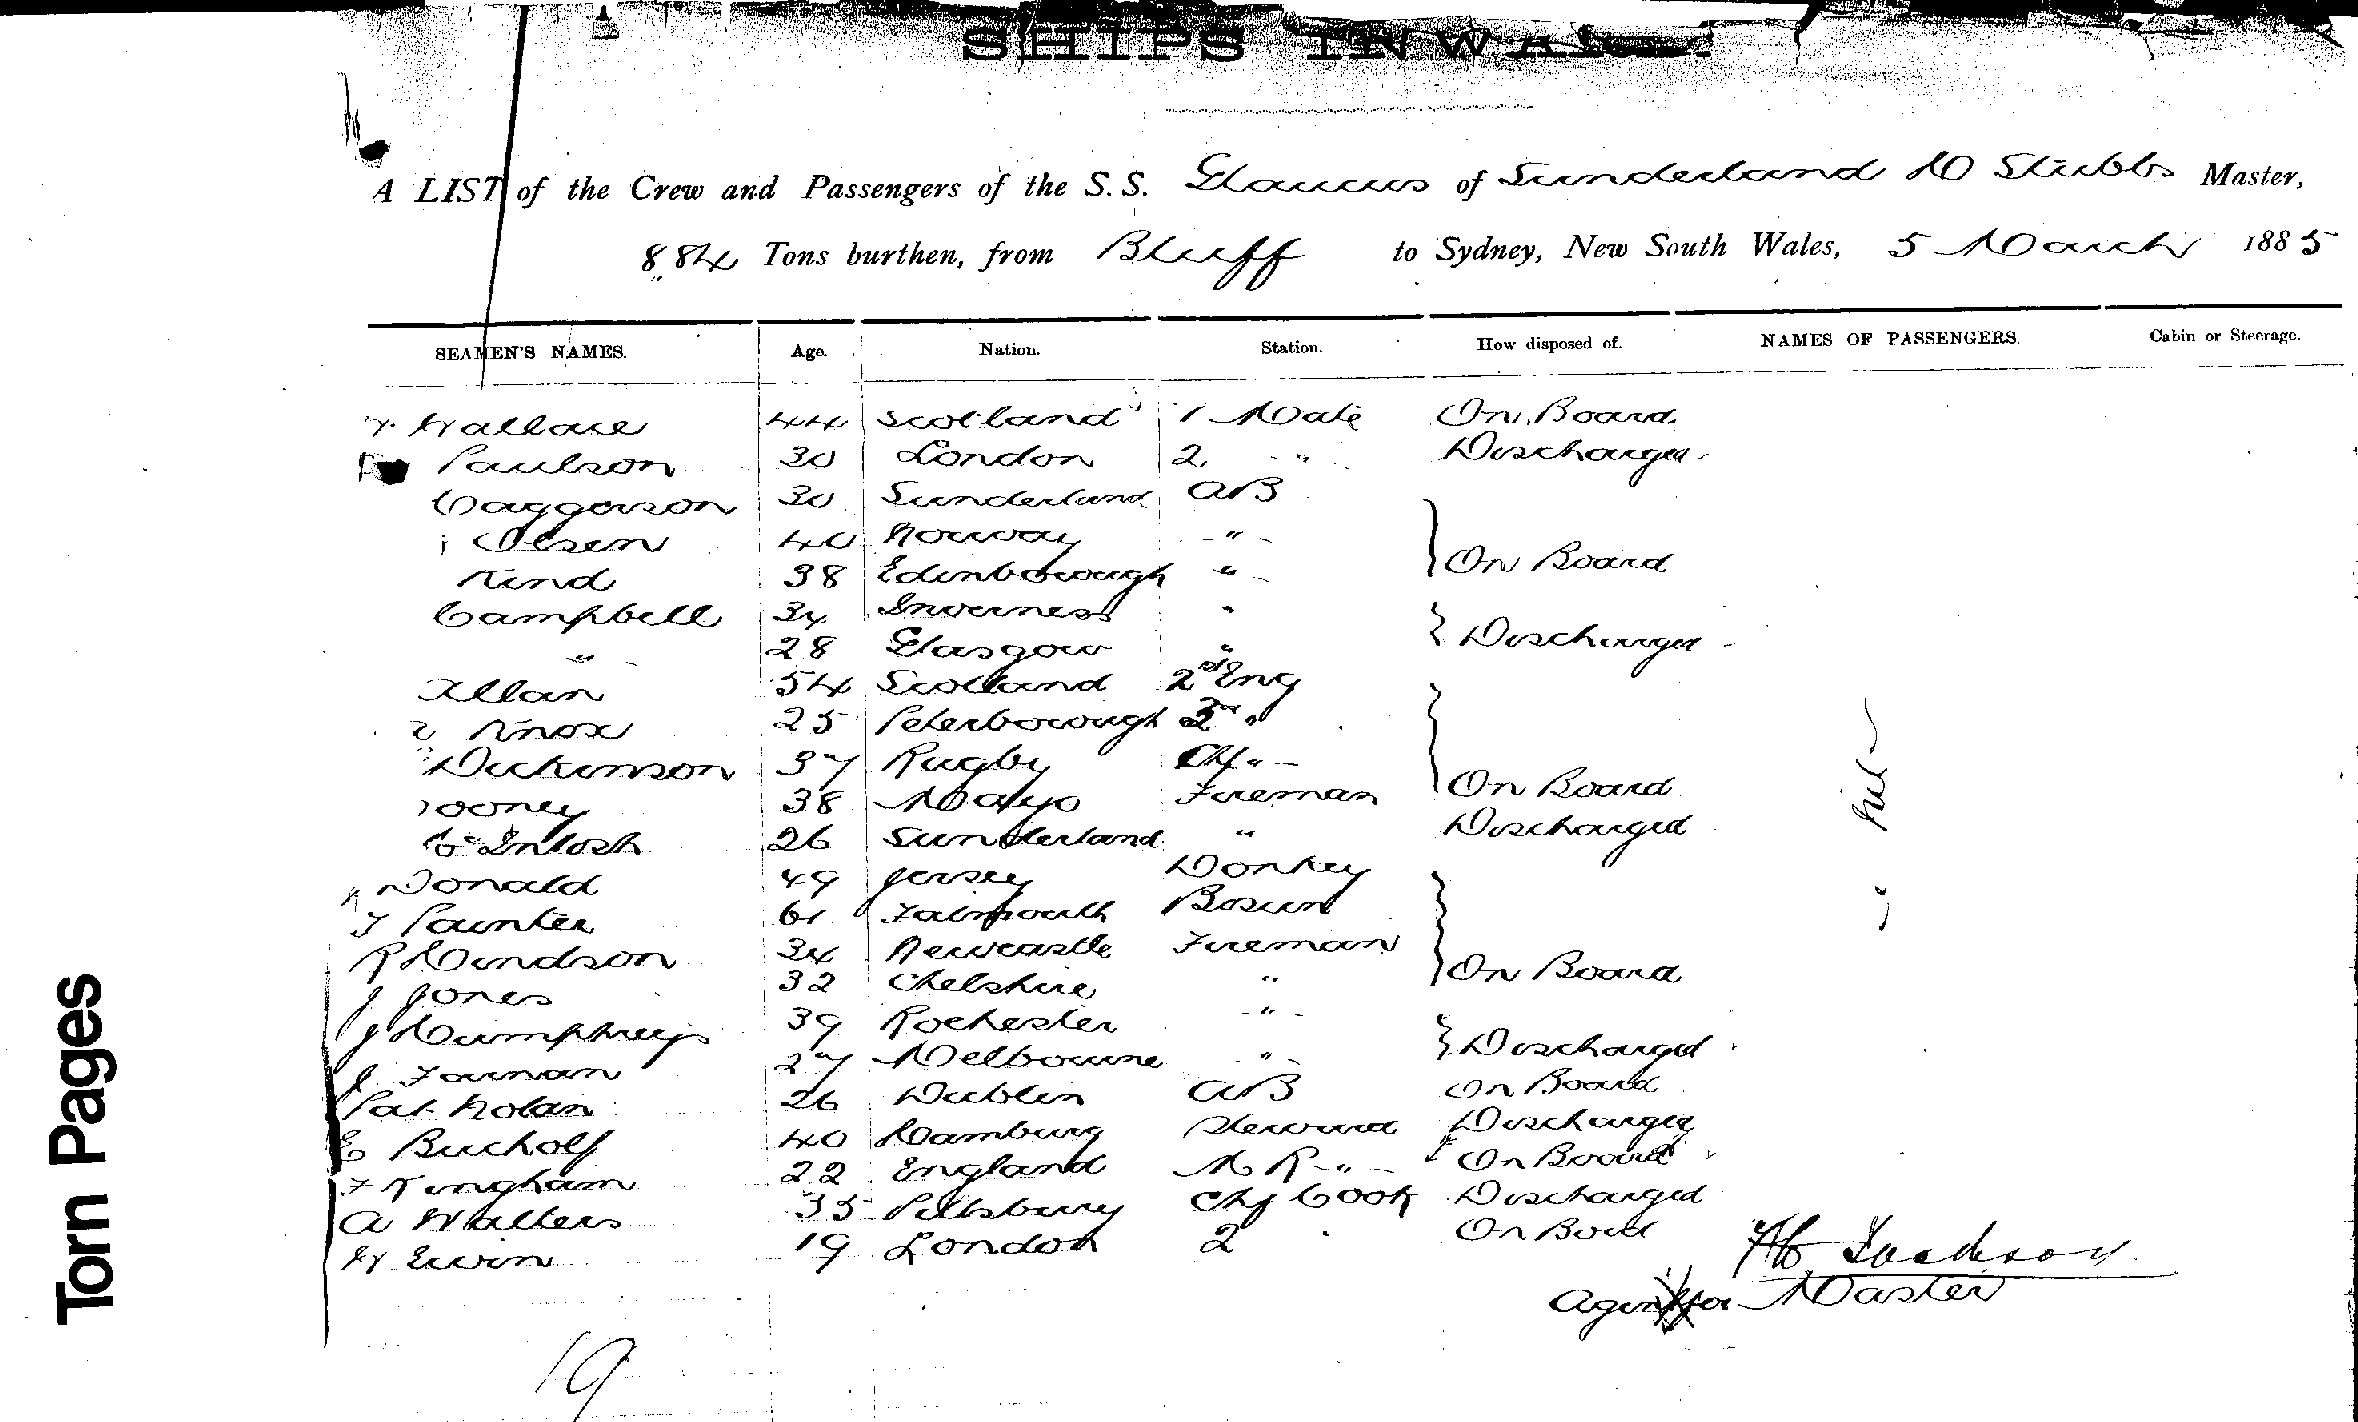 SHIPS INWA
A LIST of the Crew and Passengers of the S.S. Glaucus of Sunderland D Stubbs Master,
884 Tons burthen, from Bluff to Sydney, New South Wales, 5 March 1885
SEAMEN'S NAMES. Age. Nation. Station. How disposed of. NAMES OF PASSENGERS. Cabin or Steerage.
Wallace 44 Scotland 1 Mate On Board
Paulson 30 London 2 " Discharged
Daggerson 30 Sunderland AB
Olsen 40 Norway "
Kind 38 Edinborough " On Board
Campbell 34 Inverness "
" 28 Glasgow " Discharged
Allan 54 Scotland 2nd Eng
Knox 25 Peterborough 3rd "
Dickinson 37 Rugby Chf "
ooney 38 Mayo Fireman On Board
McIntosh 26 Sunderland " Discharged
Donald 49 Jersey Donkey
J Paunter 61 Falmouth Bosun
R Hindson 34 Newcastle Fireman
J Jones 32 Chelshire " On Board
J Humphreys 39 Rochester "
J Farnan 27 Melbourne " Discharged
Pat Nolan 26 Dublin AB On Board
E Bucholf 40 Hamburg Steward Discharged
F Kingham 22 England M R " On Board
A Walters 35 Pittsbury Chf Cook Discharged
W Ewin 19 London 2 On Board
Jackson
Agent for Master
19
Torn Pages